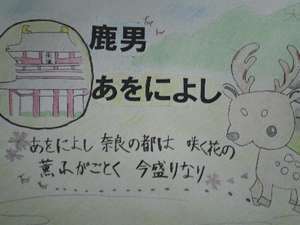 鹿男
あをによし
あをによし 奈良の都は 咲く花の
薫ふがごとく 今盛りなり